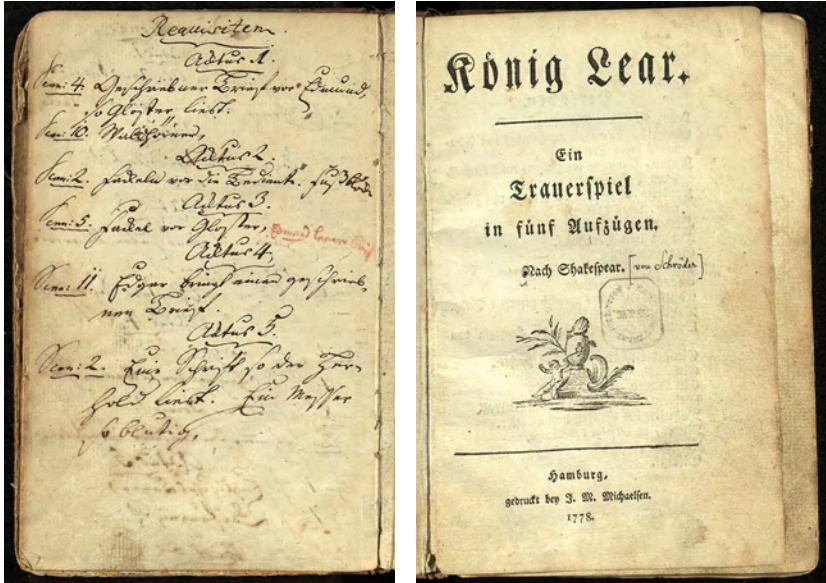 Requisiten.
Actus 1.
Scen: 4. Geschriebner Brief vor Edmund,
so Gloster liest.
Scen: 10. Waldhörner,
Actus 2.
Scen: 2. Fackeln vor die Bediente.
Actus 3.
Scen: 5. Fackel vor Gloster,
Actus 4,
Scen: 11. Edgar bringt einen geschrieb-
nen Brief.
Actus 5.
Scen: 2. Eine Schrift so der Her-
hold liest. Ein Messer
so blutig,
König Lear.
Ein
Trauerspiel
in fünf Aufzügen.
Nach Shakespear. [von Schröder]
Hamburg,
gedruckt bey J. M. Michaelsen.
1778.